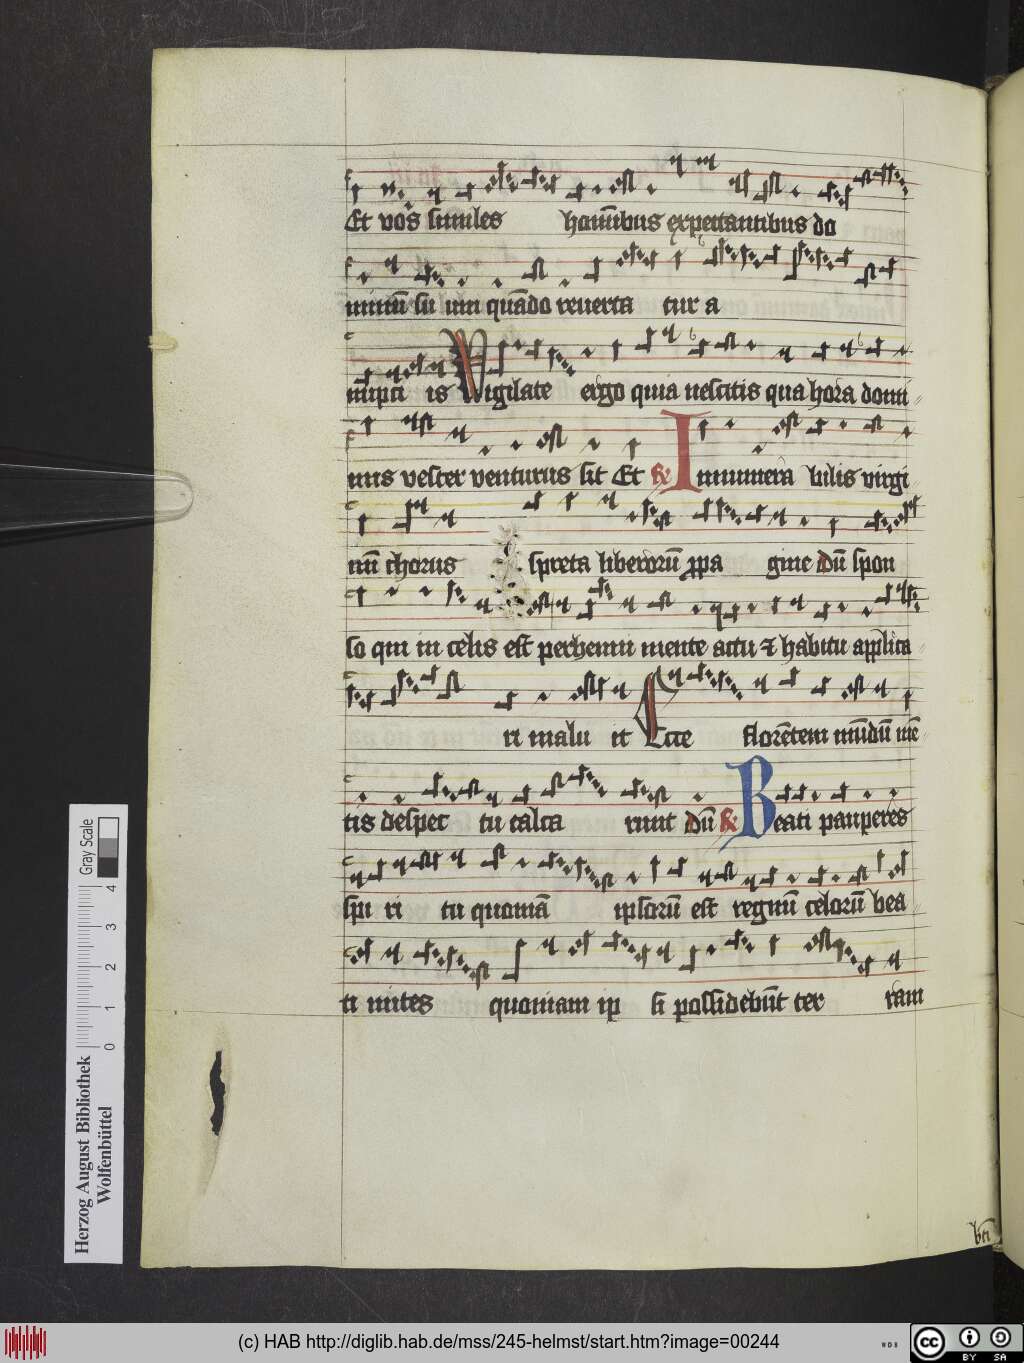 Et vos similes hom̄ībus expectantibus do
minū su um quādo reverta tur a
nupti is Vigilate ergo quia nescitis qua hora domi
nus vester venturus sit Et Innumera bilis virgi
nū chorus spreta liberorū ꝓpa gine dū spon
so qui in celis est perhenni mente actu ⁊ habitu applica
ri malu it Ecce florētem mūdū mē
tis despec tu calca runt dū Beati pauperes
spi ri tu quoniā ipsorū est regnū celorū bea
ti mites quoniam ip si possidebūt ter ram
Herzog August Bibliothek
Wolfenbüttel
0 1 2 3 4
Gray Scale
(c) HAB http://diglib.hab.de/mss/245-helmst/start.htm?image=00244
WDB
cc
BY SA